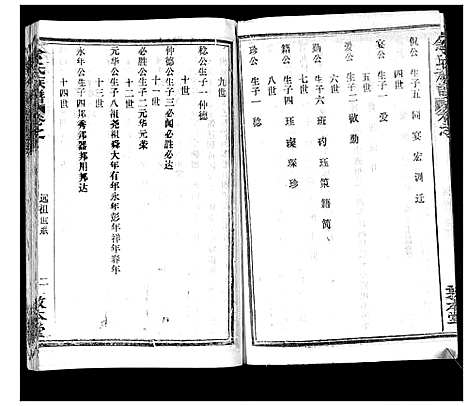 侃公 生子五 同 宴 宏 渊 迁
四世
宴公 生子一 爱
五世
爱公 生子二 敬 勤
六世
勤公 生子六 班 礿 珏 策 籍 简
七世
籍公 生子四 珏 璨 琛 珍
八世
珍公 生子一 稔
九世
稔公生子一 仲德
十世
仲德公生子三必闻必胜必达
十一世
必胜公生子二元华元荣
十二世
元华公生子八祖尧祖舜大年有年永年彭年祥年春年
十三世
永年公生子四邦秀邦器邦用邦达
十四世
远祖世系
二 敦本堂
敦本堂